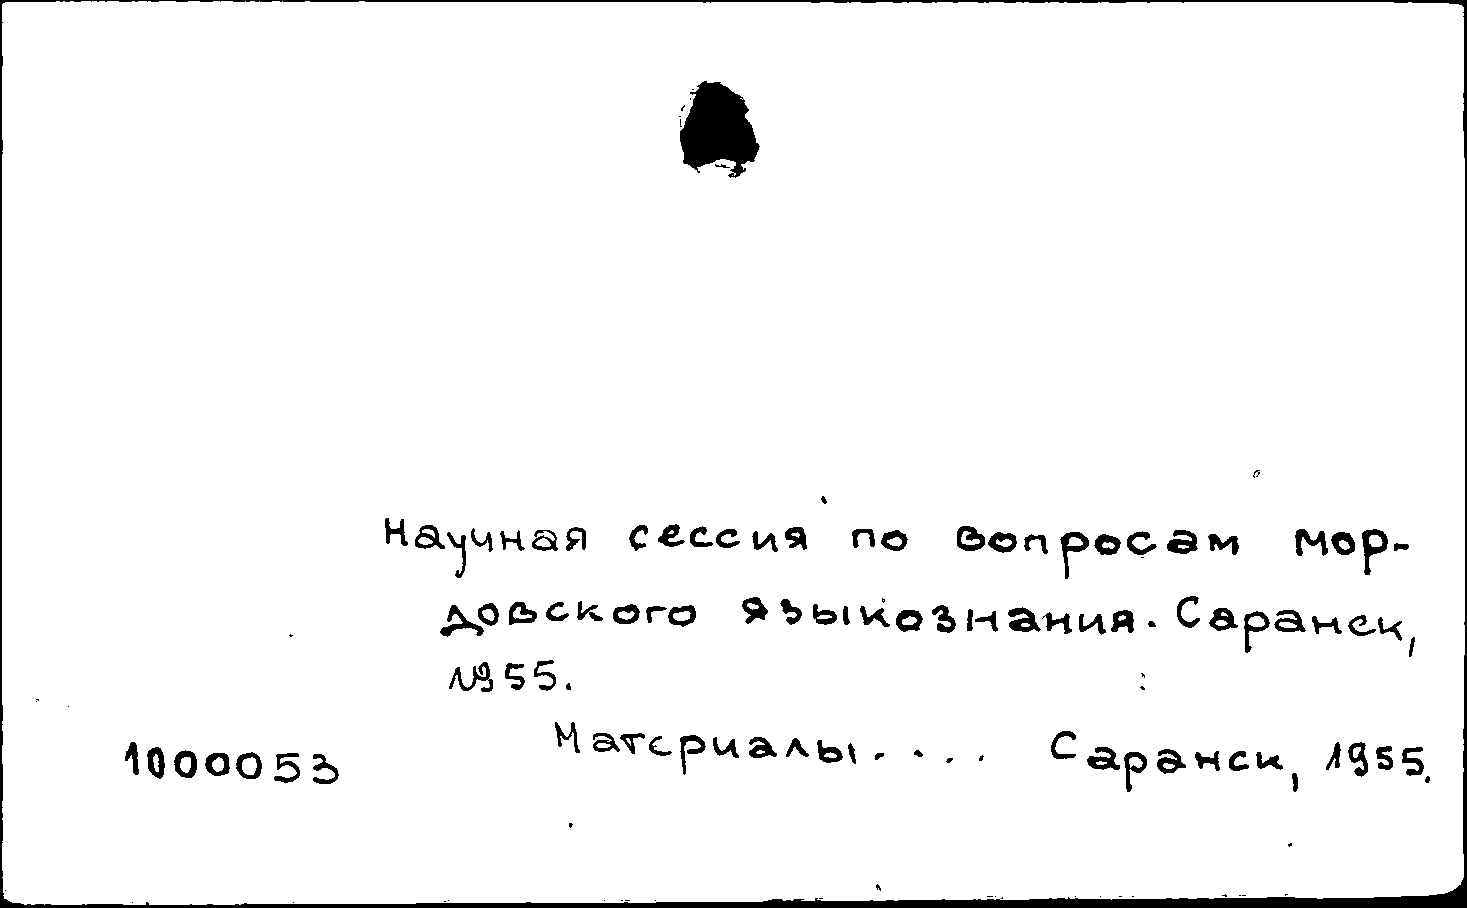 Научная сессия по вопросам мор-
довского языкознания. Саранск,
1955.
Материалы.... Саранск, 1955.
1000053